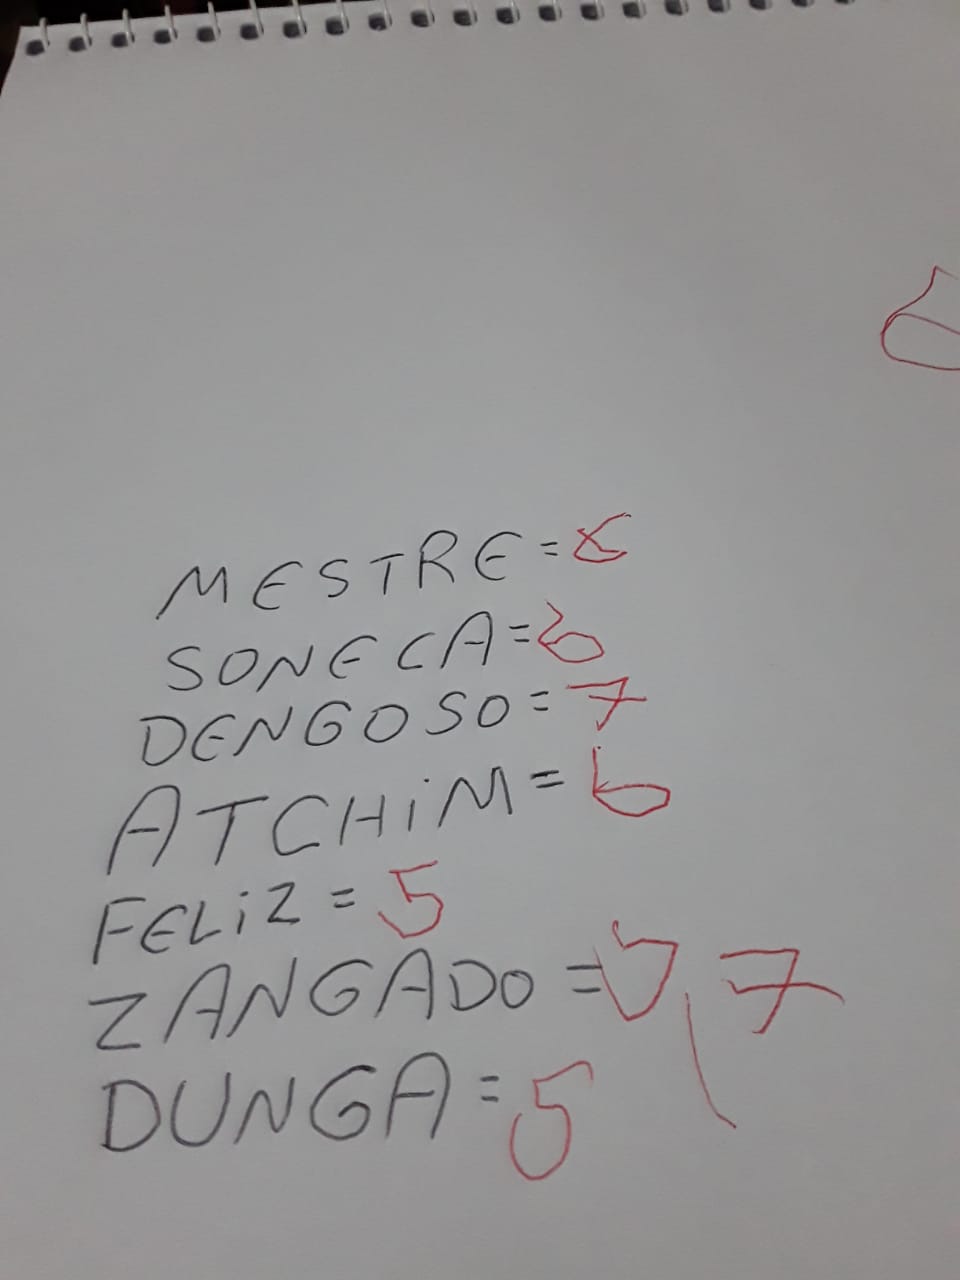 6
MESTRE=6
SONECA=6
DENGOSO=7
ATCHiM=6
FELiZ=5
ZANGADO=7
DUNGA=5